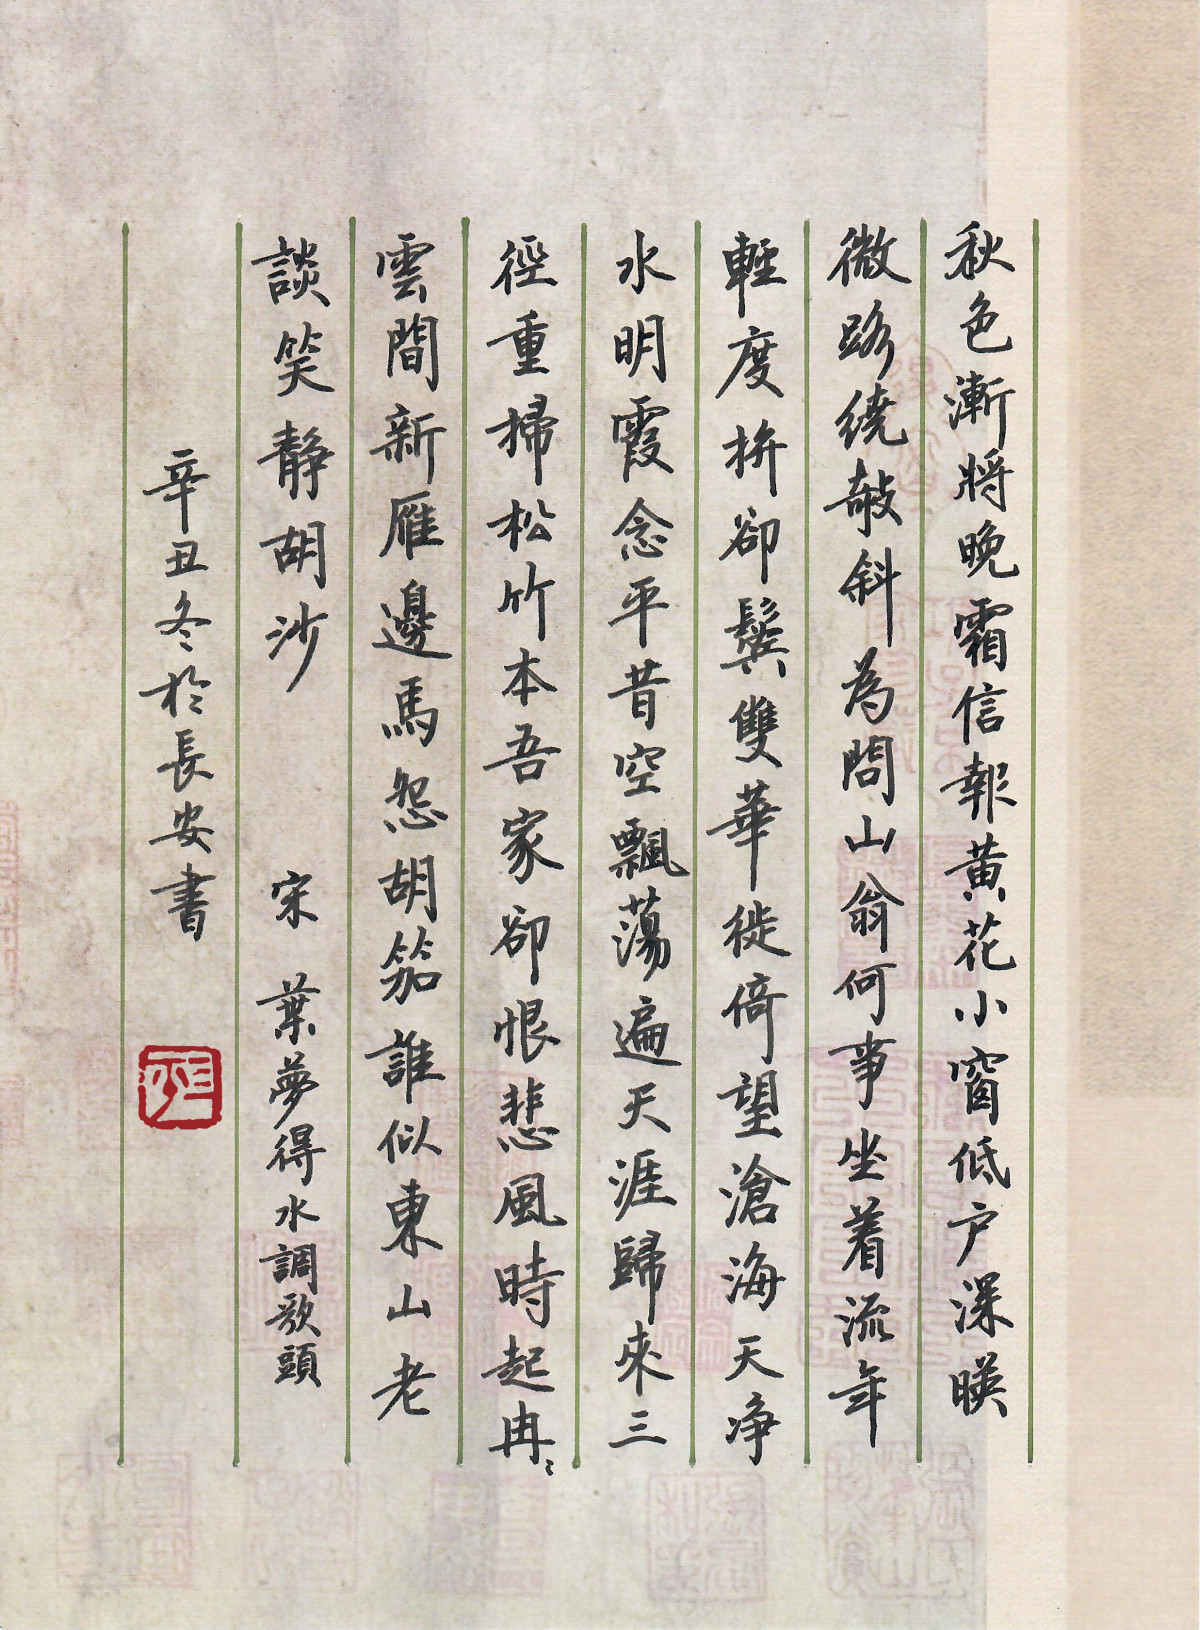 秋色漸將晚霜信報黄花小窗低户深暎
微路繞敧斜為問山翁何事坐着流年
輕度拚卻鬢雙華徙倚望滄海天净
水明霞念平昔空飄蕩遍天涯歸來三
徑重掃松竹本吾家卻恨悲風時起冉〻
雲間新雁邊馬怨胡笳誰似東山老
談笑靜胡沙 宋 葉夢得水調歌頭
辛丑冬於長安書